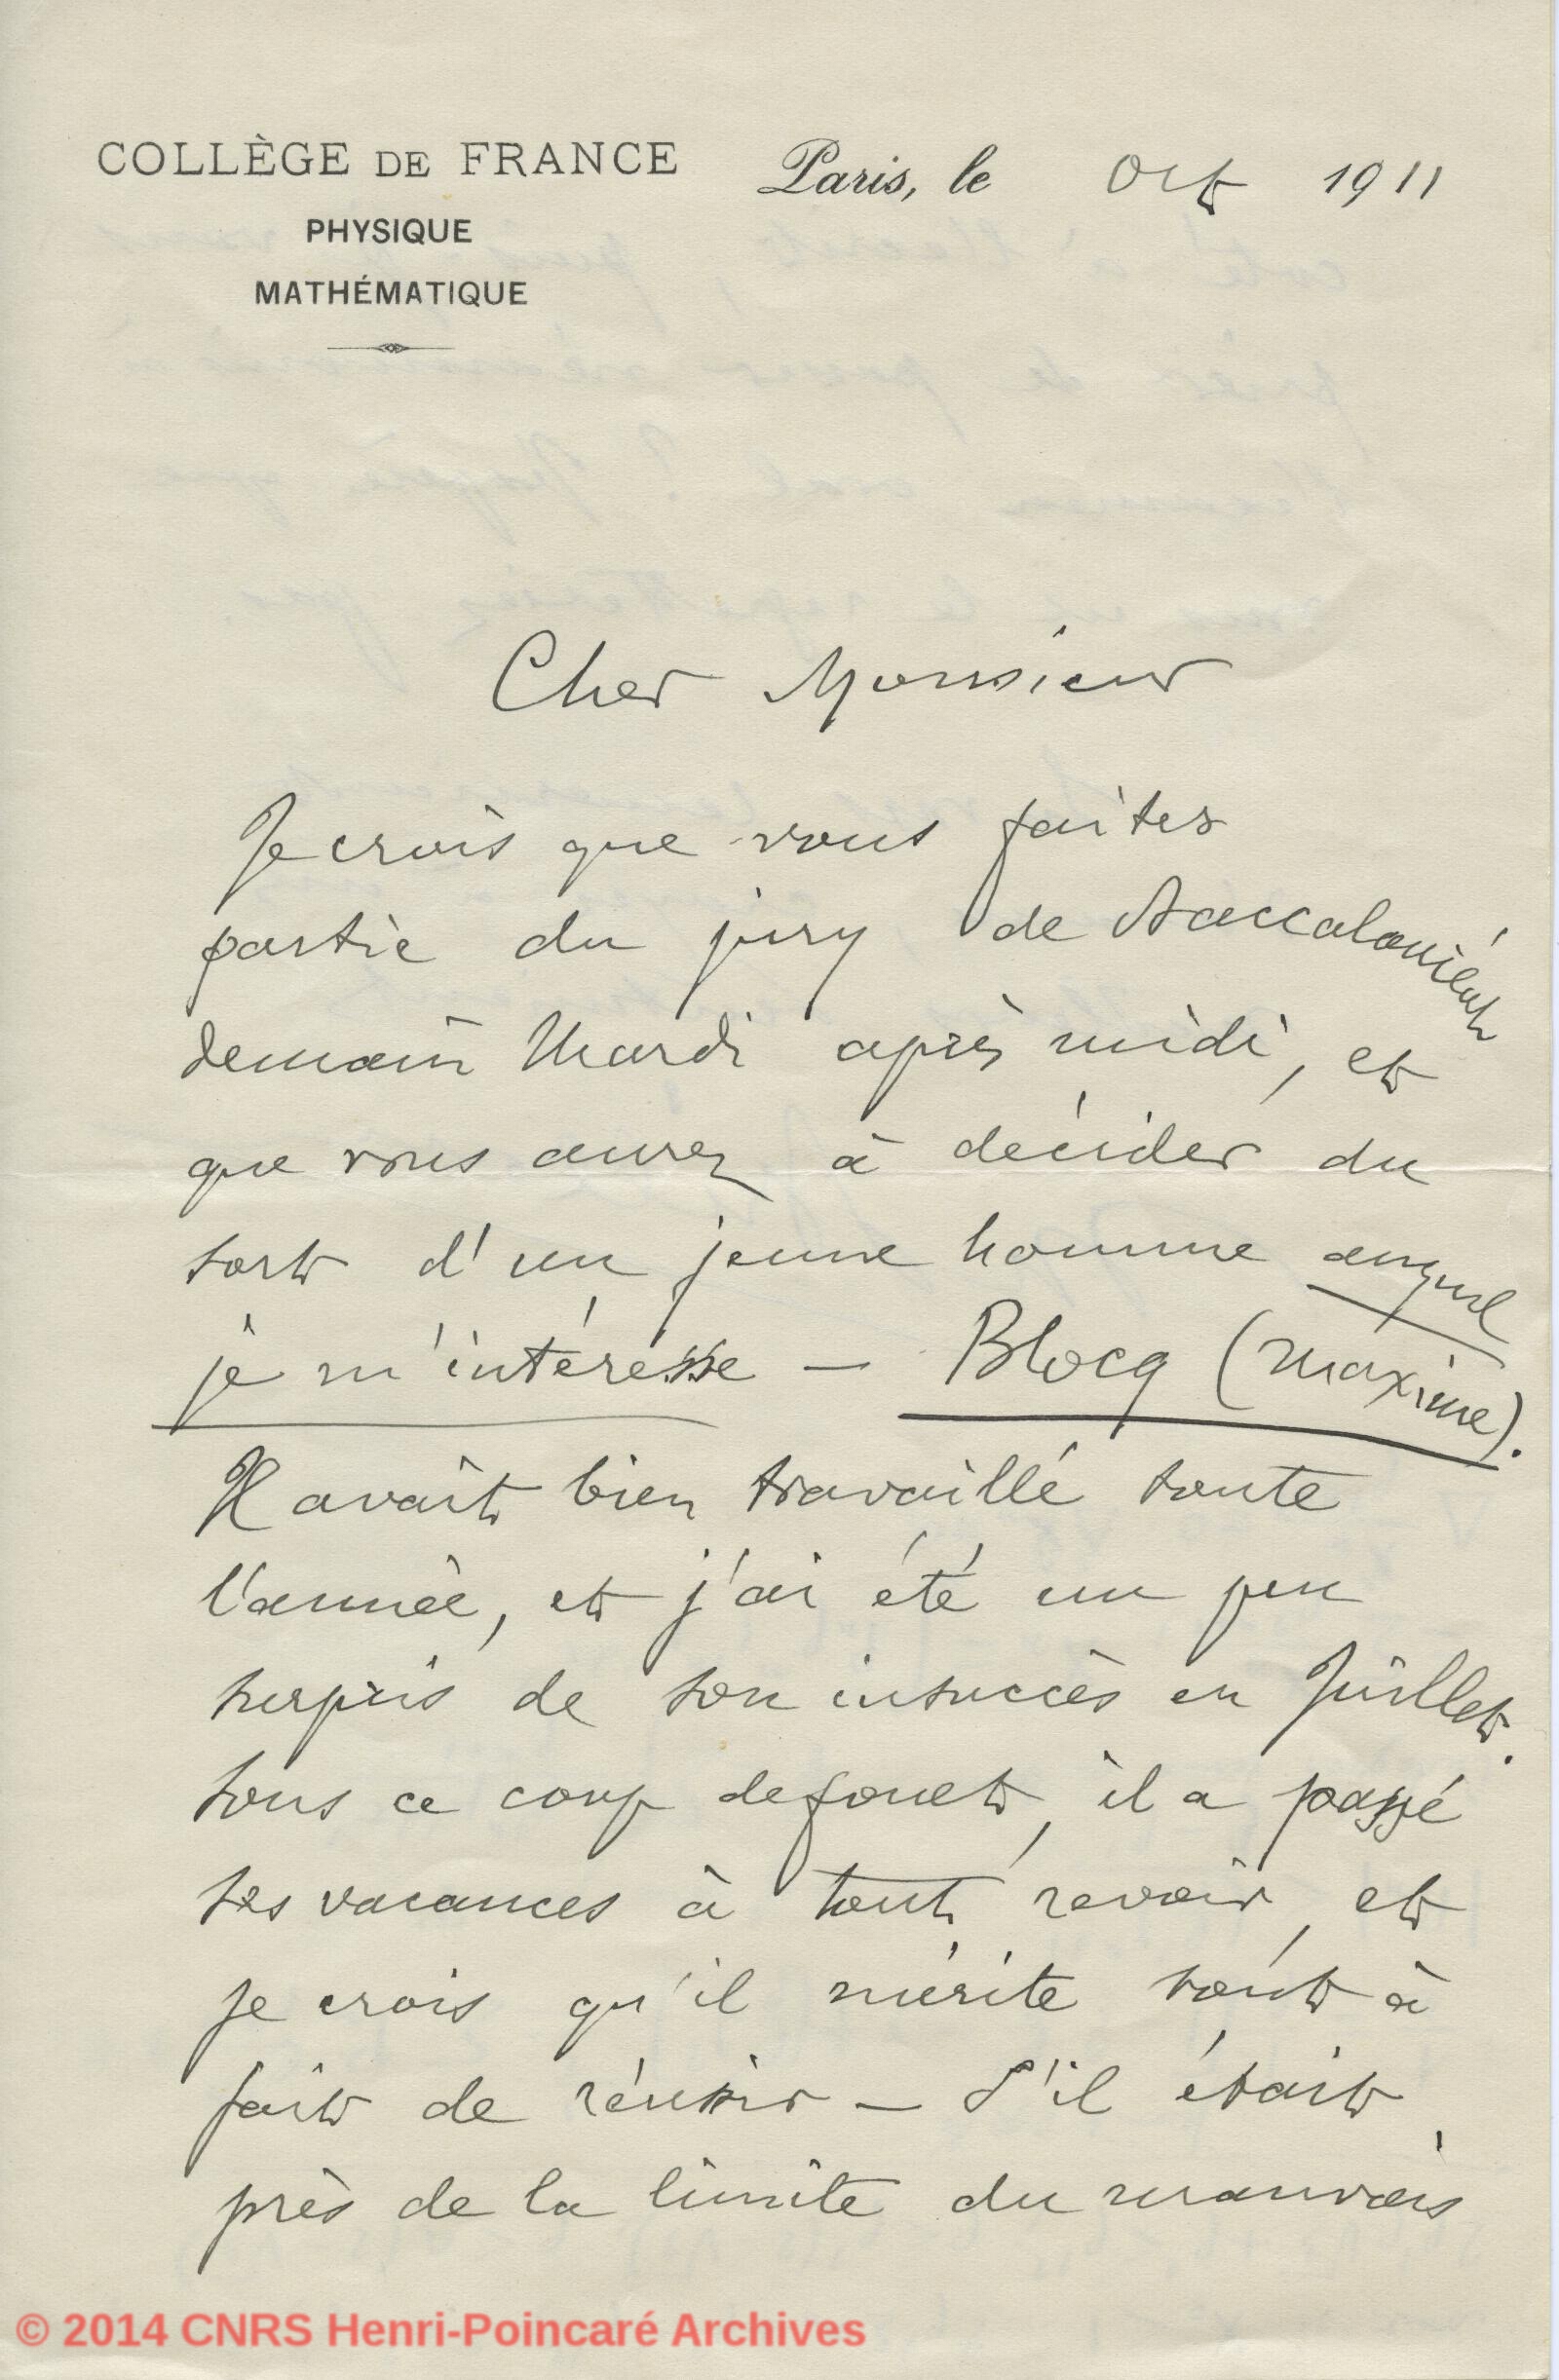 COLLÈGE DE FRANCE
PHYSIQUE
MATHÉMATIQUE
Paris, le Oct 1911
Cher Monsieur
Je crois que vous faites
partie du jury de baccalauréat
demain Mardi après midi, et
que vous aurez à décider du
sort d'un jeune homme auquel
je m'intéresse — Blocq (Maxime).
Il avait bien travaillé toute
l'année, et j'ai été un peu
surpris de son insuccès en Juillet.
Sous ce coup de fouet, il a passé
ses vacances à tout revoir, et
je crois qu'il mérite tout à
fait de réussir — S'il était
près de la limite du mauvais
© 2014 CNRS Henri-Poincaré Archives